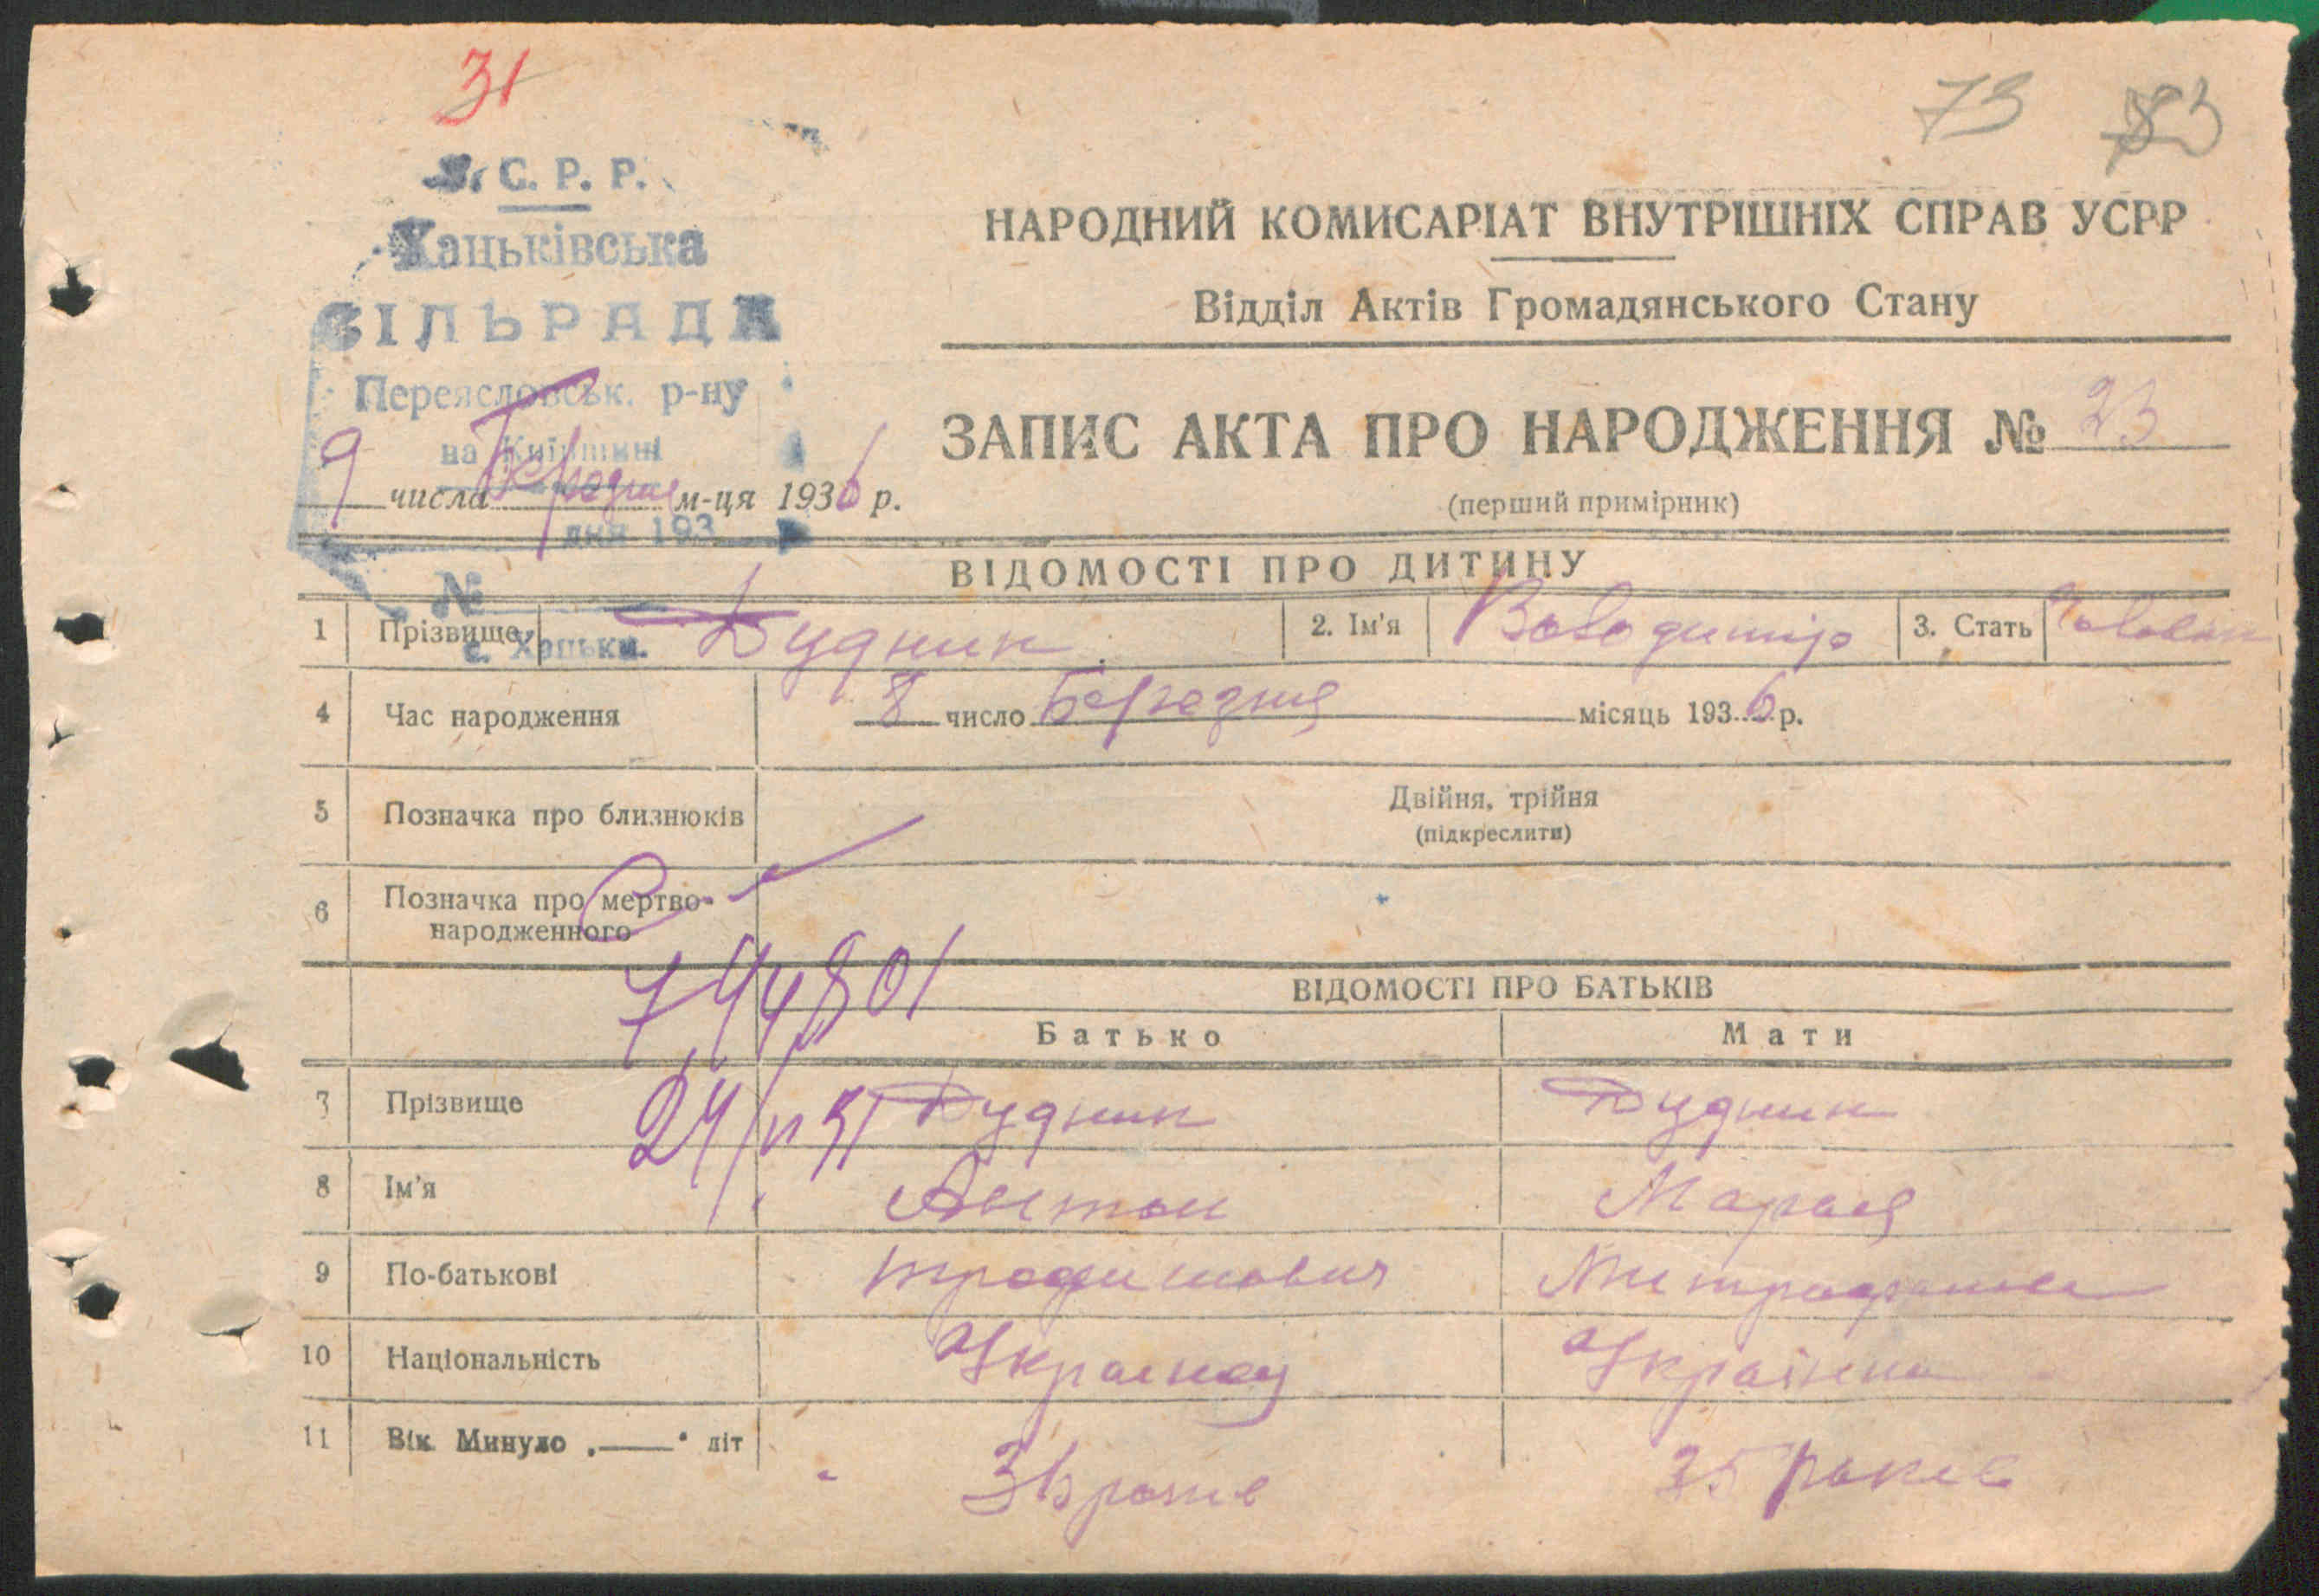 31
73 83
С. Р. Р.
Хацьківська
СІЛЬРАДА
Переясловськ. р-ну
на Київщині
9 числа Березня м-ця 1936 р.
дня 193
№
с. Хацьки.
НАРОДНИЙ КОМИСАРІАТ ВНУТРІШНІХ СПРАВ УСРР
Відділ Актів Громадянського Стану
ЗАПИС АКТА ПРО НАРОДЖЕННЯ № 23
(перший примірник)
ВІДОМОСТІ ПРО ДИТИНУ
1 Прізвище Дудник 2. Ім'я Володимір 3. Стать
4 Час народження 8 число Березня місяць 1936 р.
5 Позначка про близнюків Двійня, трійня
(підкреслити)
6 Позначка про мертво-
народженного
ВІДОМОСТІ ПРО БАТЬКІВ
Батько Мати
7 Прізвище Дудник Дудник
8 Ім'я Антон Мария
9 По-батькові Трофимович
10 Національність Українец Українка
11 Вік Минуло „—“ літ 36 років 35 років